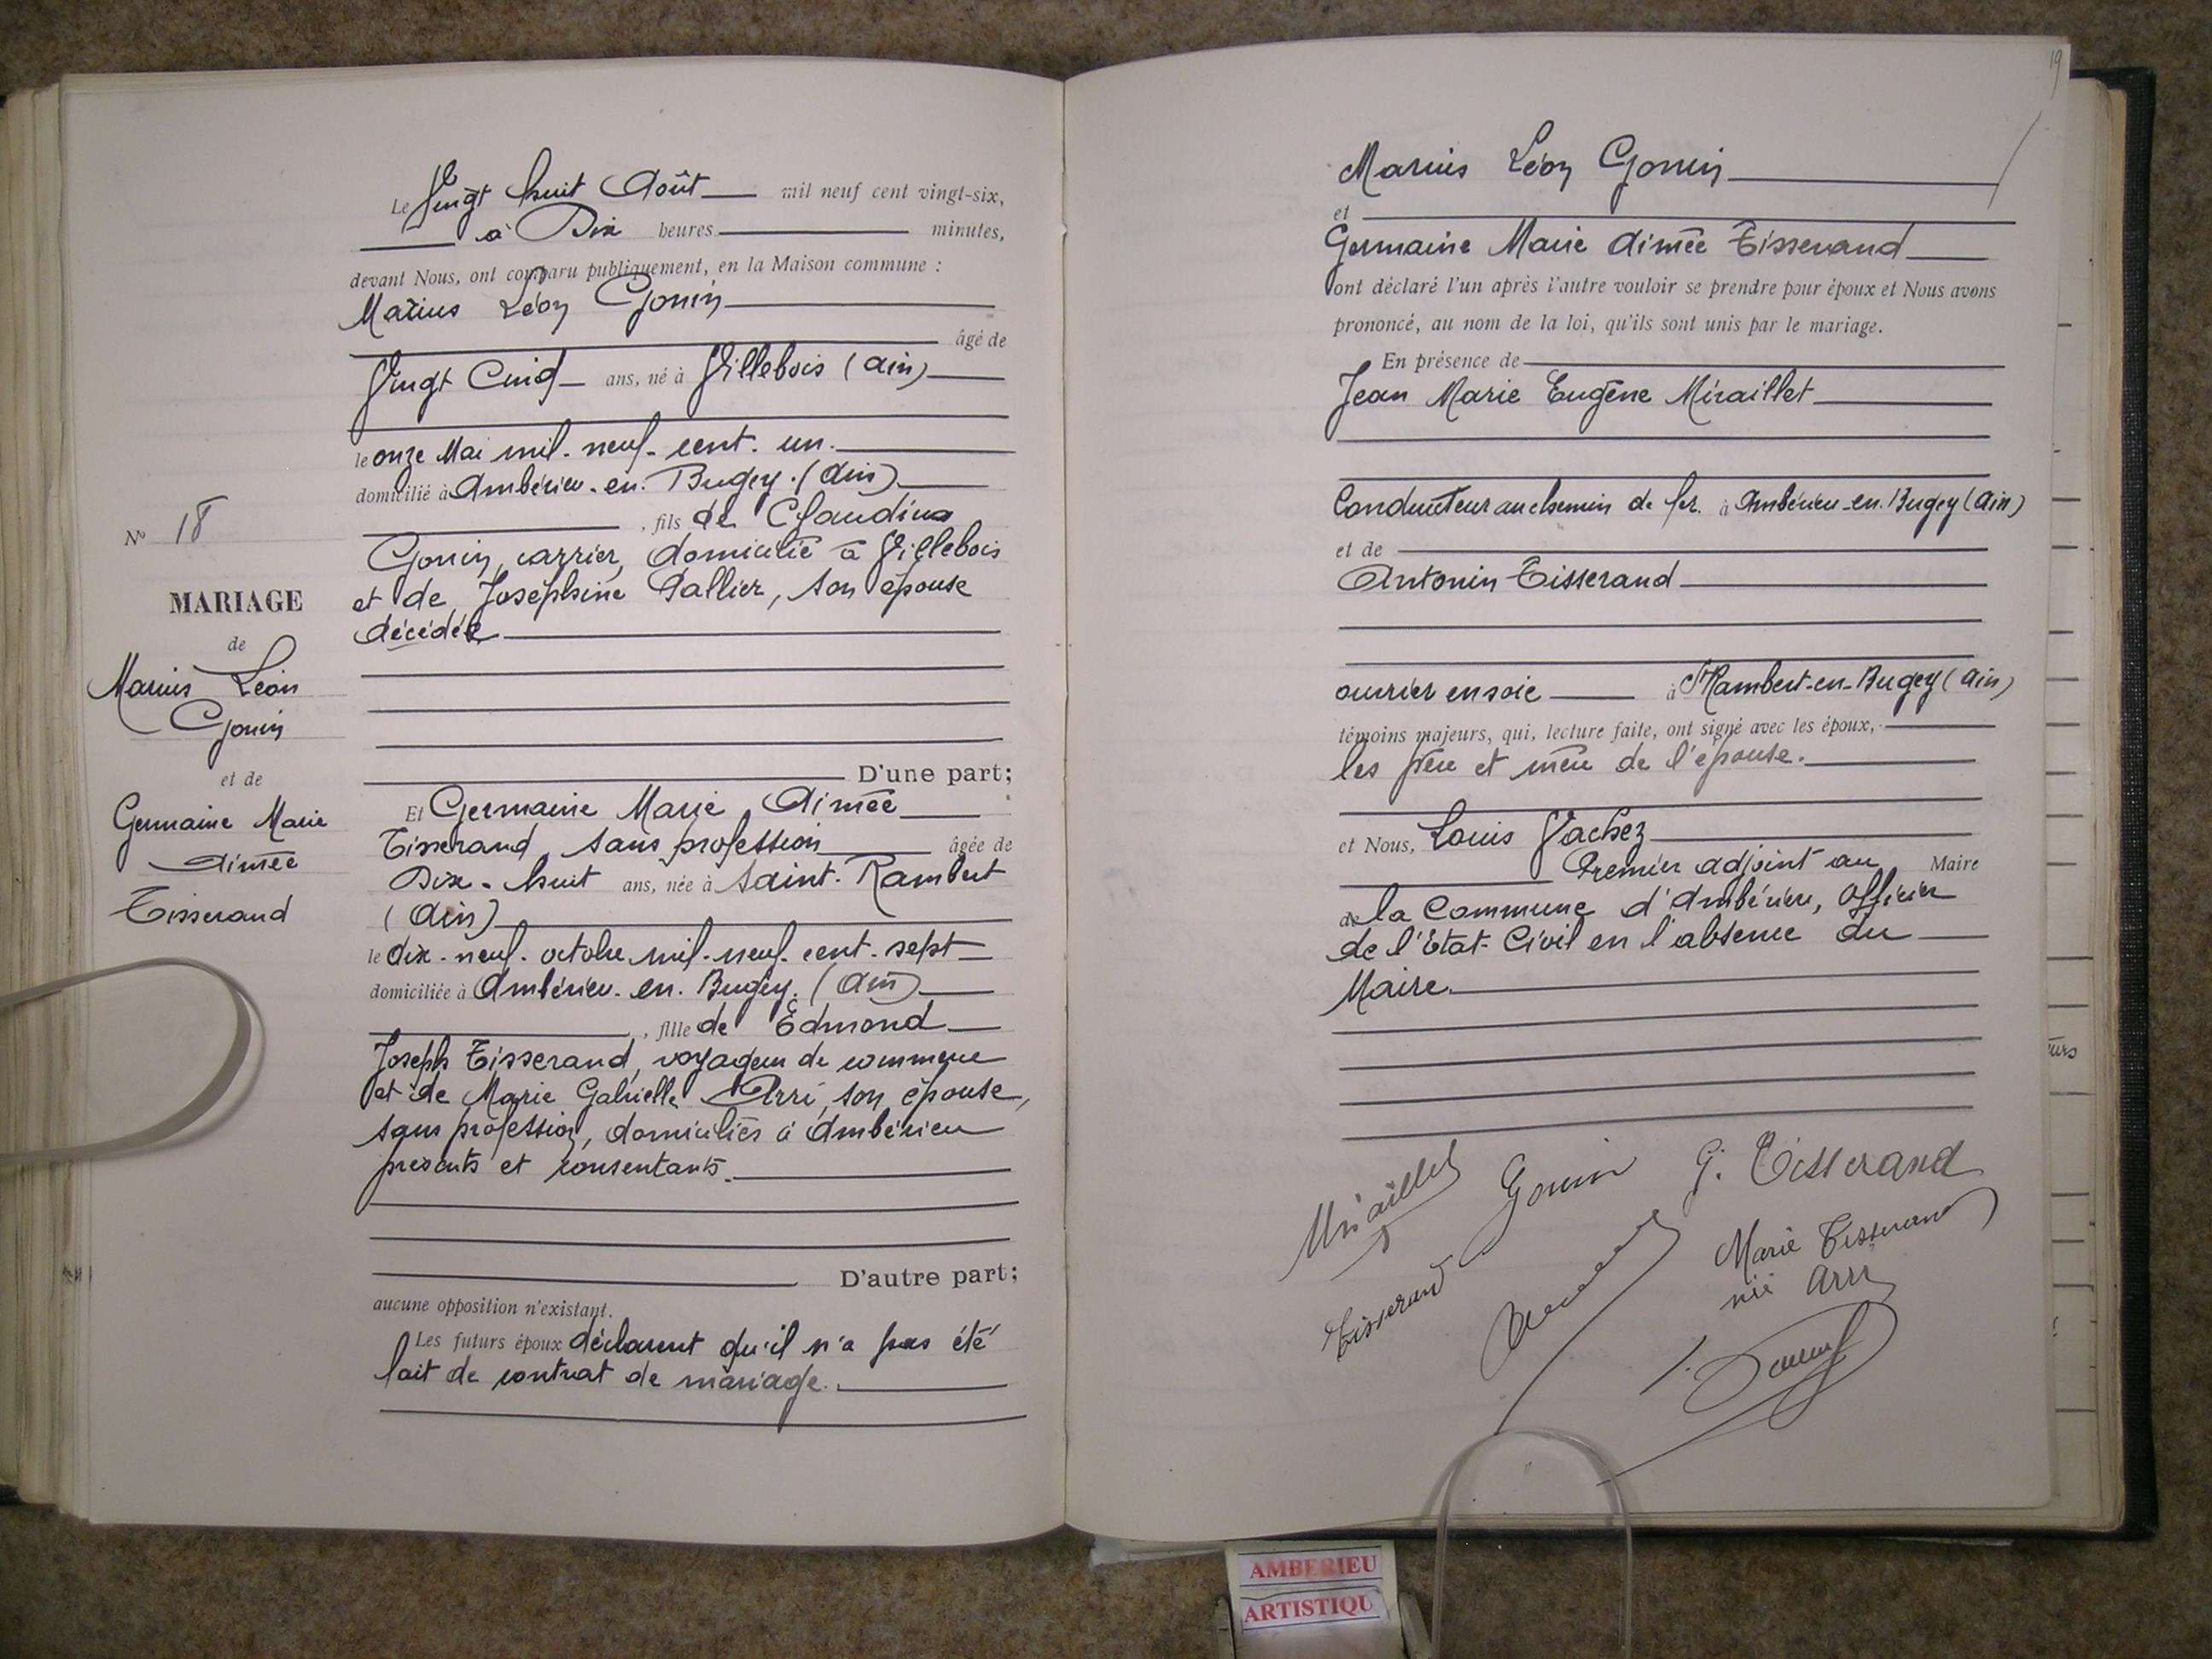 N° 18
MARIAGE
de
Marius Léon
Gonin
et de
Germaine Marie
Aimée
Tisserand
Le Vingt huit Août mil neuf cent vingt-six,
à Dix heures minutes,
devant Nous, ont comparu publiquement, en la Maison commune :
Marius Léon Gonin
âgé de
Vingt Cinq ans, né à Villebois (Ain)
le onze Mai mil-neuf-cent-un.
domicilié à Ambérieu-en-Bugey (Ain)
, fils de Claudius
Gonin, carrier, domicilié à Villebois
et de Joséphine Pallier, son épouse
décédée
D'une part;
Et Germaine Marie Aimée
Tisserand, sans profession âgée de
Dix-huit ans, née à Saint-Rambert
(Ain)
le dix-neuf octobre mil-neuf-cent-sept
domiciliée à Ambérieu-en-Bugey (Ain)
, fille de Edmond
Joseph Tisserand, voyageur de commerce
et de Marie Gabrielle Arri, son épouse,
sans profession, domiciliés à Ambérieu
présents et consentants.
D'autre part;
aucune opposition n'existant.
Les futurs époux déclarent qu'il n'a pas été
fait de contrat de mariage.
19
Marius Léon Gonin
et
Germaine Marie Aimée Tisserand
ont déclaré l'un après l'autre vouloir se prendre pour époux et Nous avons
prononcé, au nom de la loi, qu'ils sont unis par le mariage.
En présence de
Jean Marie Eugène Miraillet
Conducteur au chemin de fer à Ambérieu-en-Bugey (Ain)
et de
Antonin Tisserand
ouvrier en soie à St Rambert-en-Bugey (Ain)
témoins majeurs, qui, lecture faite, ont signé avec les époux,
les père et mère de l'épouse.
et Nous, Louis Vachez
Premier adjoint au Maire
de la Commune d'Ambérieu, Officier
de l'État-Civil en l'absence du
Maire.
Miraillet Gonin G. Tisserand
Tisserand Marie Tisserand
née Arri
AMBERIEU
ARTISTIQU